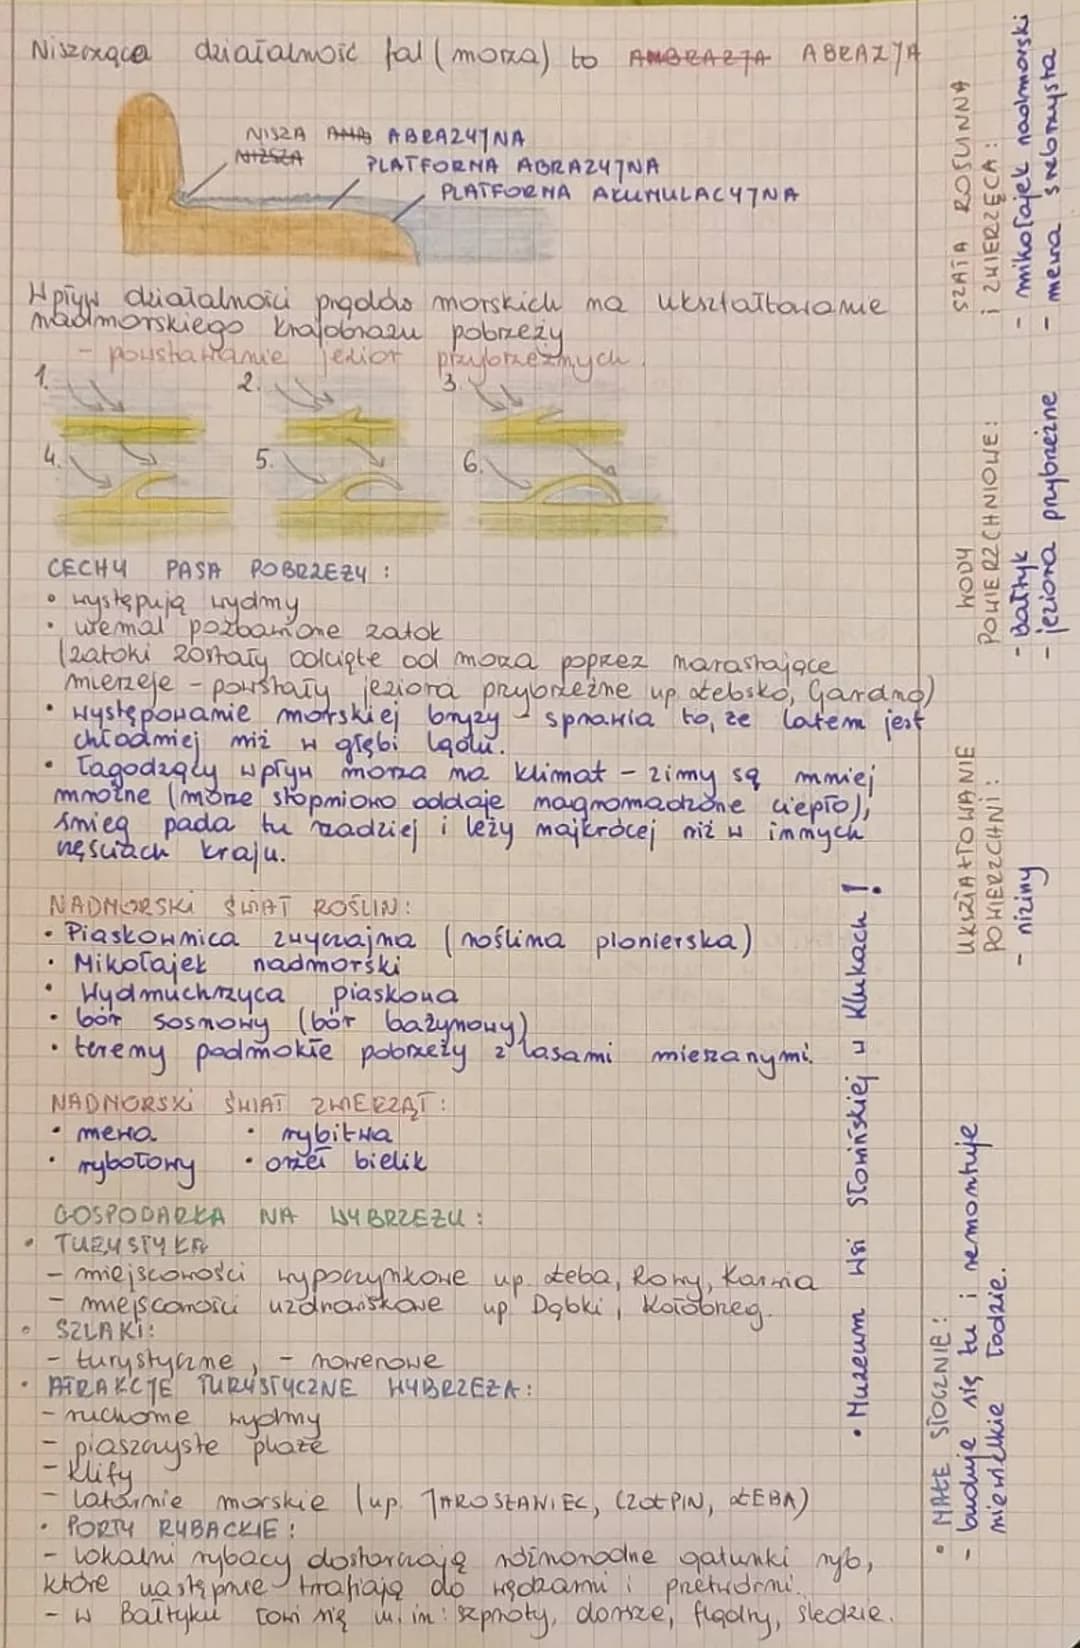 Niszcząca działalność fal (morza) to AMBRAZJA ABRAZJA
NISZA AMB ABRAZYJNA
NIZSZA
PLATFORMA ABRAZYJNA
PLATFORMA AKUMULACYJNA
Wpływ działalności prądów morskich na ukształtowanie
nadmorskiego krajobrazu pobrzeży
- powstawanie jezior przybrzeżnych.
1. 2. 3.
4. 5. 6.
CECHY PASA POBRZEŻY:
• występują wydmy
• niemal pozbawione zatok
(zatoki zostały odcięte od morza poprzez narastające
mierzeje - powstały jeziora przybrzeżne np. Łebsko, Gardno)
• występowanie morskiej bryzy - sprawia to, że latem jest
chłodniej niż w głębi lądu.
• Łagodzący wpływ morza na klimat - zimy są mniej
mroźne (morze stopniowo oddaje nagromadzone ciepło),
śnieg pada tu rzadziej i leży najkrócej niż w innych
częściach kraju.
NADMORSKI ŚWIAT ROŚLIN:
• Piaskownica zwyczajna (roślina pionierska)
• Mikołajek nadmorski
• Wydmuchrzyca piaskowa
• bór sosnowy (bór bażynowy)
• tereny podmokłe pobrzeży z lasami mieszanymi.
NADMORSKI ŚWIAT ZWIERZĄT:
• mewa • rybitwa
• rybołowy • orzeł bielik
GOSPODARKA NA WYBRZEŻU:
• TURYSTYKA
- miejscowości wypoczynkowe np. Łeba, Rowy, Karwia
- miejscowości uzdrowiskowe np. Dąbki, Kołobrzeg.
• SZLAKI:
- turystyczne, - rowerowe
• ATRAKCJE TURYSTYCZNE WYBRZEŻA:
- ruchome wydmy
- piaszczyste plaże
- klify
- latarnie morskie (np. JAROSŁAWIEC, CZOŁPIN, ŁEBA)
• PORTY RYBACKIE:
- lokalni rybacy dostarczają różnorodne gatunki ryb,
które następnie trafiają do wędzarni i przetwórni.
- w Bałtyku łowi się m.in: szproty, dorsze, flądry, śledzie.
• Muzeum Wsi Słowińskiej w Klukach!
• MAŁE STOCZNIE:
- buduje się tu i remontuje
niewielkie łodzie.
UKSZTAŁTOWANIE
POWIERZCHNI:
- niziny
WODY
POWIERZCHNIOWE:
- Bałtyk
- jeziora przybrzeżne
SZATA ROŚLINNA
i ZWIERZĘCA:
- mikołajek nadmorski
- mewa srebrzysta